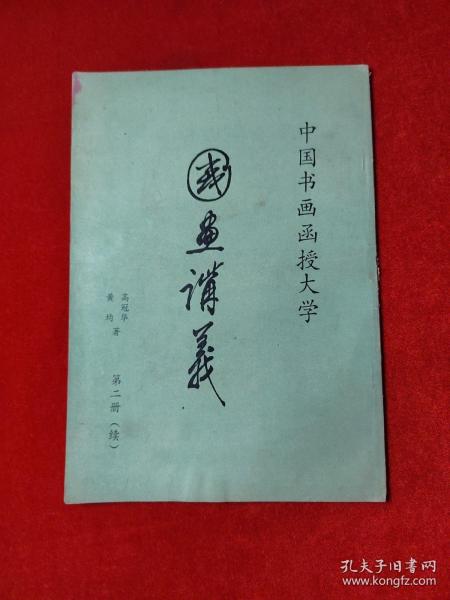 中国书画函授大学
國画講義
高冠华
黄均 著
第二册（续）
孔夫子旧书网
www.kongfz.com